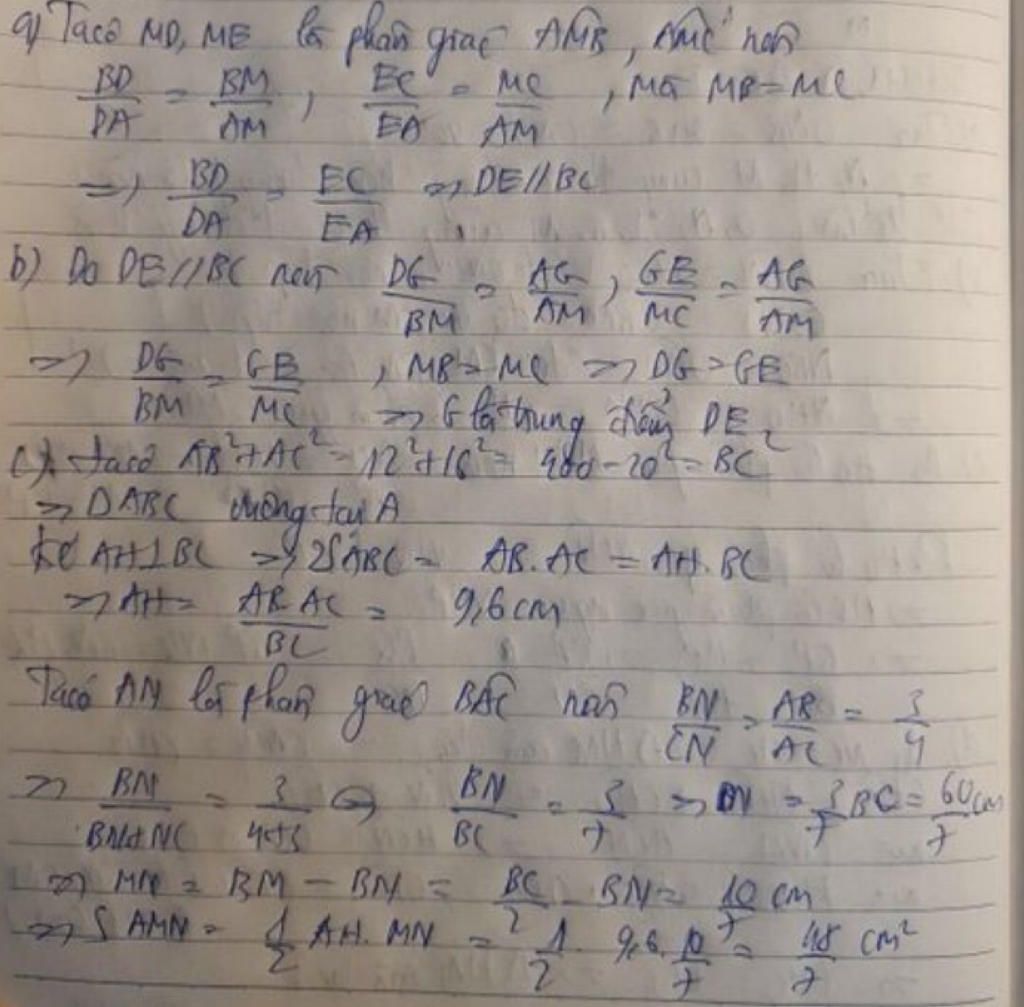 a) Ta có MD, ME là phân giác AMB, AMC nên
BD/DA = BM/AM, EC/EA = MC/AM, Mà MB = MC
=> BD/DA = EC/EA => DE//BC
b) Do DE//BC nên DG/BM = AG/AM, GE/MC = AG/AM
=> DG/BM = GE/MC, MB = MC => DG = GE
=> G là trung điểm DE
c) ta có AB² + AC² = 12² + 16² = 400 = 20² = BC²
=> ΔABC vuông tại A
Kẻ AH⊥BC => 2SABC = AB.AC = AH.BC
=> AH = AB.AC/BC = 9,6 cm
Ta có AN là phân giác BAC nên BN/CN = AB/AC = 3/4
=> BN/BN+NC = 3/4+3 <=> BN/BC = 3/7 => BN = 3/7 BC = 60/7 cm
=> MN = BM - BN = BC/2 - BN = 10/7 cm
=> SAMN = 1/2 AH.MN = 1/2 . 9,6 . 10/7 = 48/7 cm²